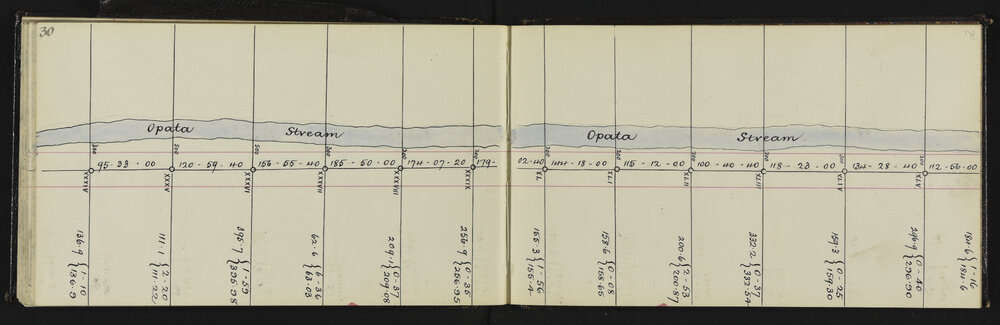 30
Opata Stream
Opata Stream
95-33-00 120-59-40 156-55-40 185-50-00 174-07-20 179-
02-40 144-18-00 115-12-00 100-40-40 118-23-00 134-28-40 112-56-00
XXXIV XXXV XXXVI XXXVII XXXVIII XXXIX
XL XLI XLII XLIII XLIV XLV
136.9 {1-10 136.9
111.1 {2-20 111.22
395.7 {1-59 395.98
62.6 {6-36 63.03
209.1 {0-37 209.08
256.9 {0-35 256.95
155.3 {1-56 155.4
158.6 {0-08 158.65
200.6 {2-53 200.87
332.2 {0-37
159.3 {0-25 159.30
296.9 {0-40 296.90
184.6 {1-16 184.6